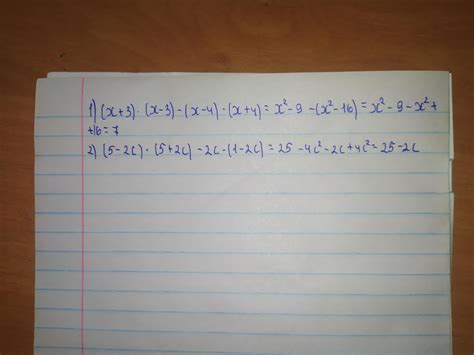 1) (x+3)·(x-3)-(x-4)·(x+4)= x²-9-(x²-16)= x²-9-x²+
+16=7
2) (5-2c)·(5+2c)-2c·(1-2c)=25-4c²-2c+4c²=25-2c